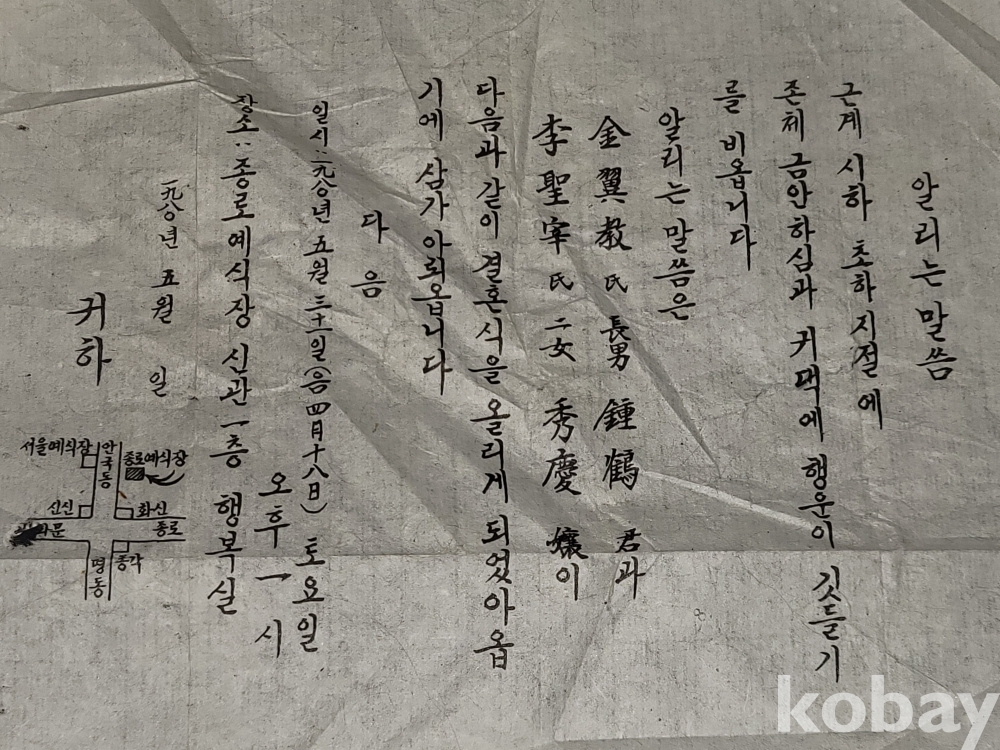 알리는 말씀
근계 시하 초하지절에
존체 금안하심과 귀댁에 행운이 깃들기
를 비옵니다
알리는 말씀은
金翼教氏 長男 鍾鶴 君과
李聖宰氏 二女 秀慶 孃이
다음과 같이 결혼식을 올리게 되었아옵
기에 삼가 아뢰옵니다
다음
일시: 一九八〇년 五월 三十一일(음 四月十八日) 토요일
오후 一시
장소: 종로예식장 신관 一층 행복실
一九八〇년 五월 일
귀하
서울예식장
안국동
종로예식장
신신
화신
종로
종각
명동
kobay